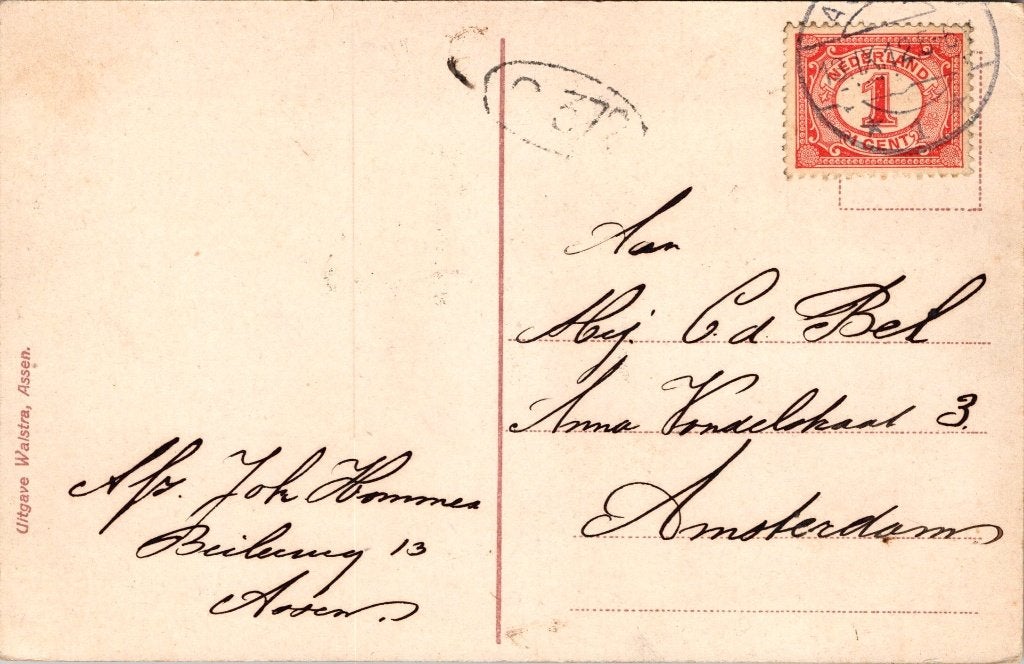 Uitgave Walstra, Assen.
NEDERLAND
1
1 CENT
Aan
Mej. C d Bel
Anna Vondelstraat 3.
Amsterdam
Afz. Joh Hommes
Beilerweg 13
Assen.